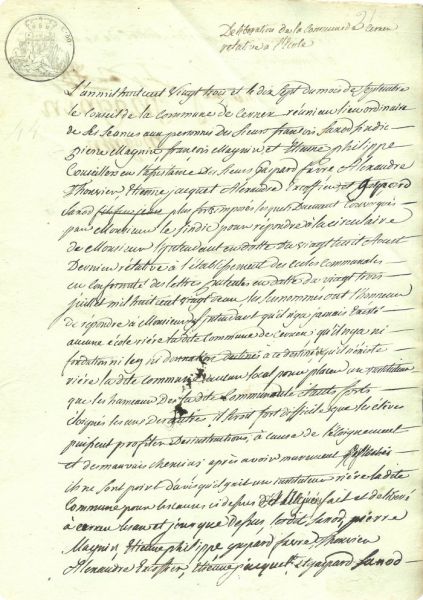 Deliberation de la Commune de Cervex
relative à l'Ecole
L'an mil huit cent vingt trois et le dix sept du mois de septembre
le Conseil de la Commune de Cervex réuni au lieu ordinaire
de ses séances aux personnes des sieurs françois Sanod sindic
pierre Magnin françois Magnin et Etienne philippe
Conseillers en l'assistance des sieurs Gaspard favre Alexandre
Thouvier Etienne jacquet Alexandre et gaspard
Sanod plus forts imposés lesquels Convoqués
par Monsieur le sindic pour repondre à la circulaire
de Monsieur lyntendant en datte du vingt huit Aoust
Dernier rélative à l'établissement des ecoles communales
en Conformité des lettres patentes en datte du vingt trois
juillet mil huit cent vingt deux les susnommés ont l'honneur
de répondre à Monsieur lyntendant qu'il n'a jamais existé
aucune école riére la ditte Commune de Cervex qu'il n'y a ni
fondation ni legs ni donnation destinés à ce destin qu'il n'existe
riére la ditte commune aucun local pour placer un instituteur
que les hameaux de la ditte Communauté étants forts
éloignés les uns des autres, il seroit fort difficile que les éleves
puissent profiter Des instructions, à cause de l'éloignement
et des mauvais chemins après avoir murement Réfléchis
ils ne sont point d'avis qu'il y ait un instituteur riére la ditte
Commune pour les causes ci dessus fait et délibéré
à cervex les an et jour que dessus Sanod, pierre
Magnin, Etienne philippe gaspard favre Thouvier
Alexandre Etienne jacquet et gaspard Sanod